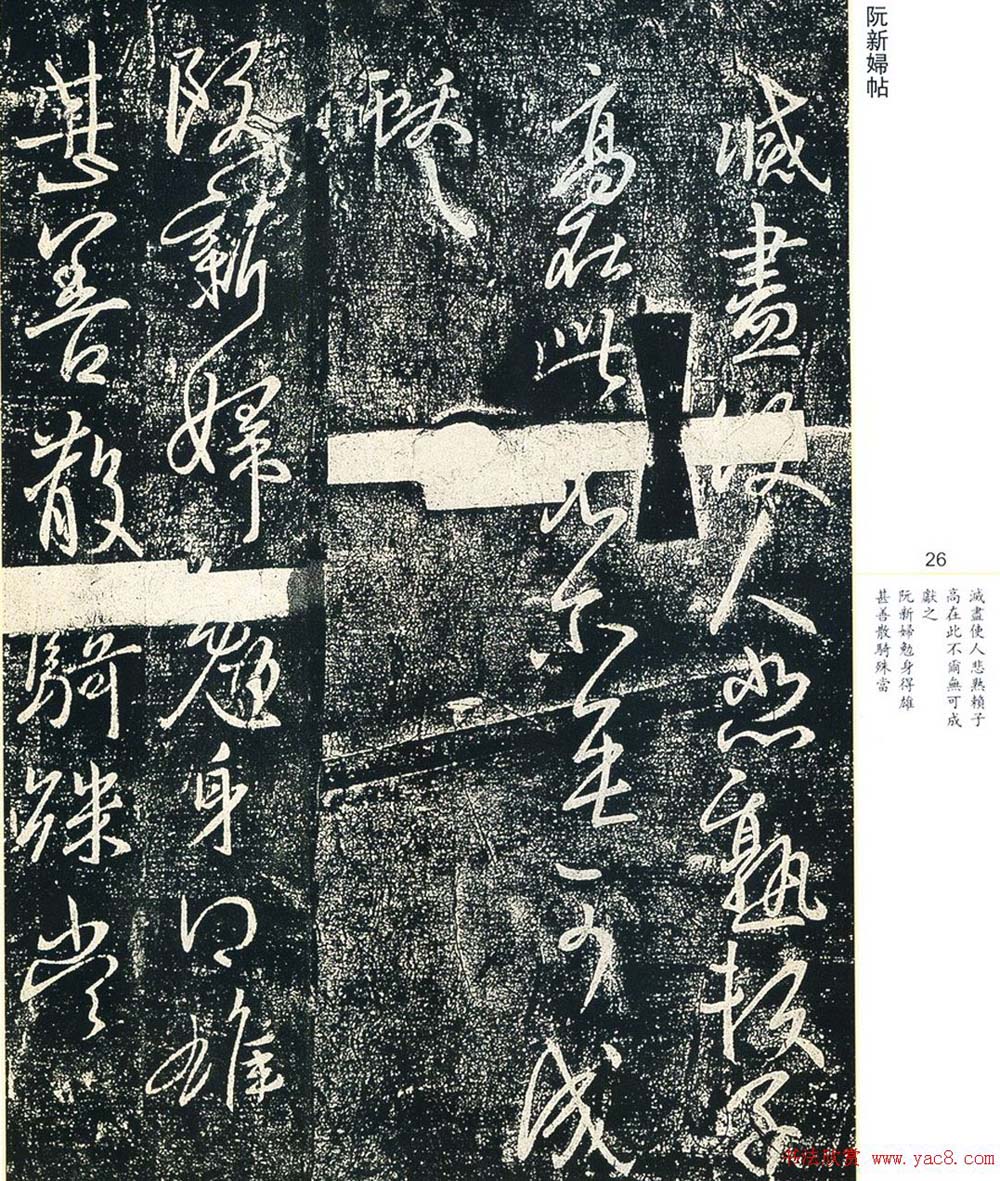 阮新婦帖
26
滅盡使人悲熟賴子
高在此不爾無可成
獻之
阮新婦勉身得雄
甚善散騎殊當
滅盡使人悲熟賴子
高在此不爾無可成
獻之
阮新婦勉身得雄
甚善散騎殊當
书法欣赏 www.yac8.com